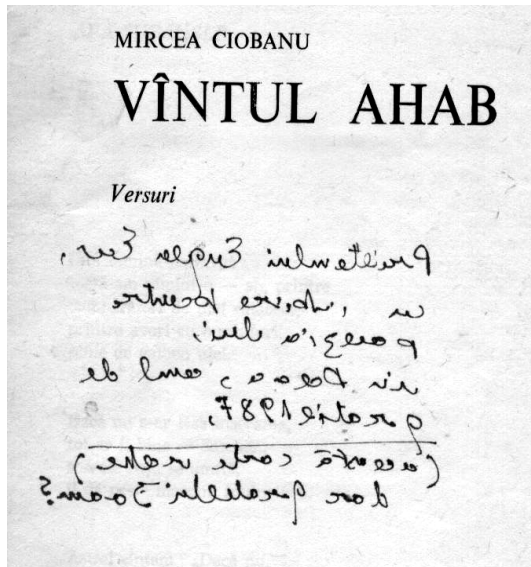 MIRCEA CIOBANU
VÎNTUL AHAB
Versuri
Prietenului Eugen Evu,
cu iubire pentru
poezia lui,
în Deva, anul de
grație 1987,
(această carte veche)
dar